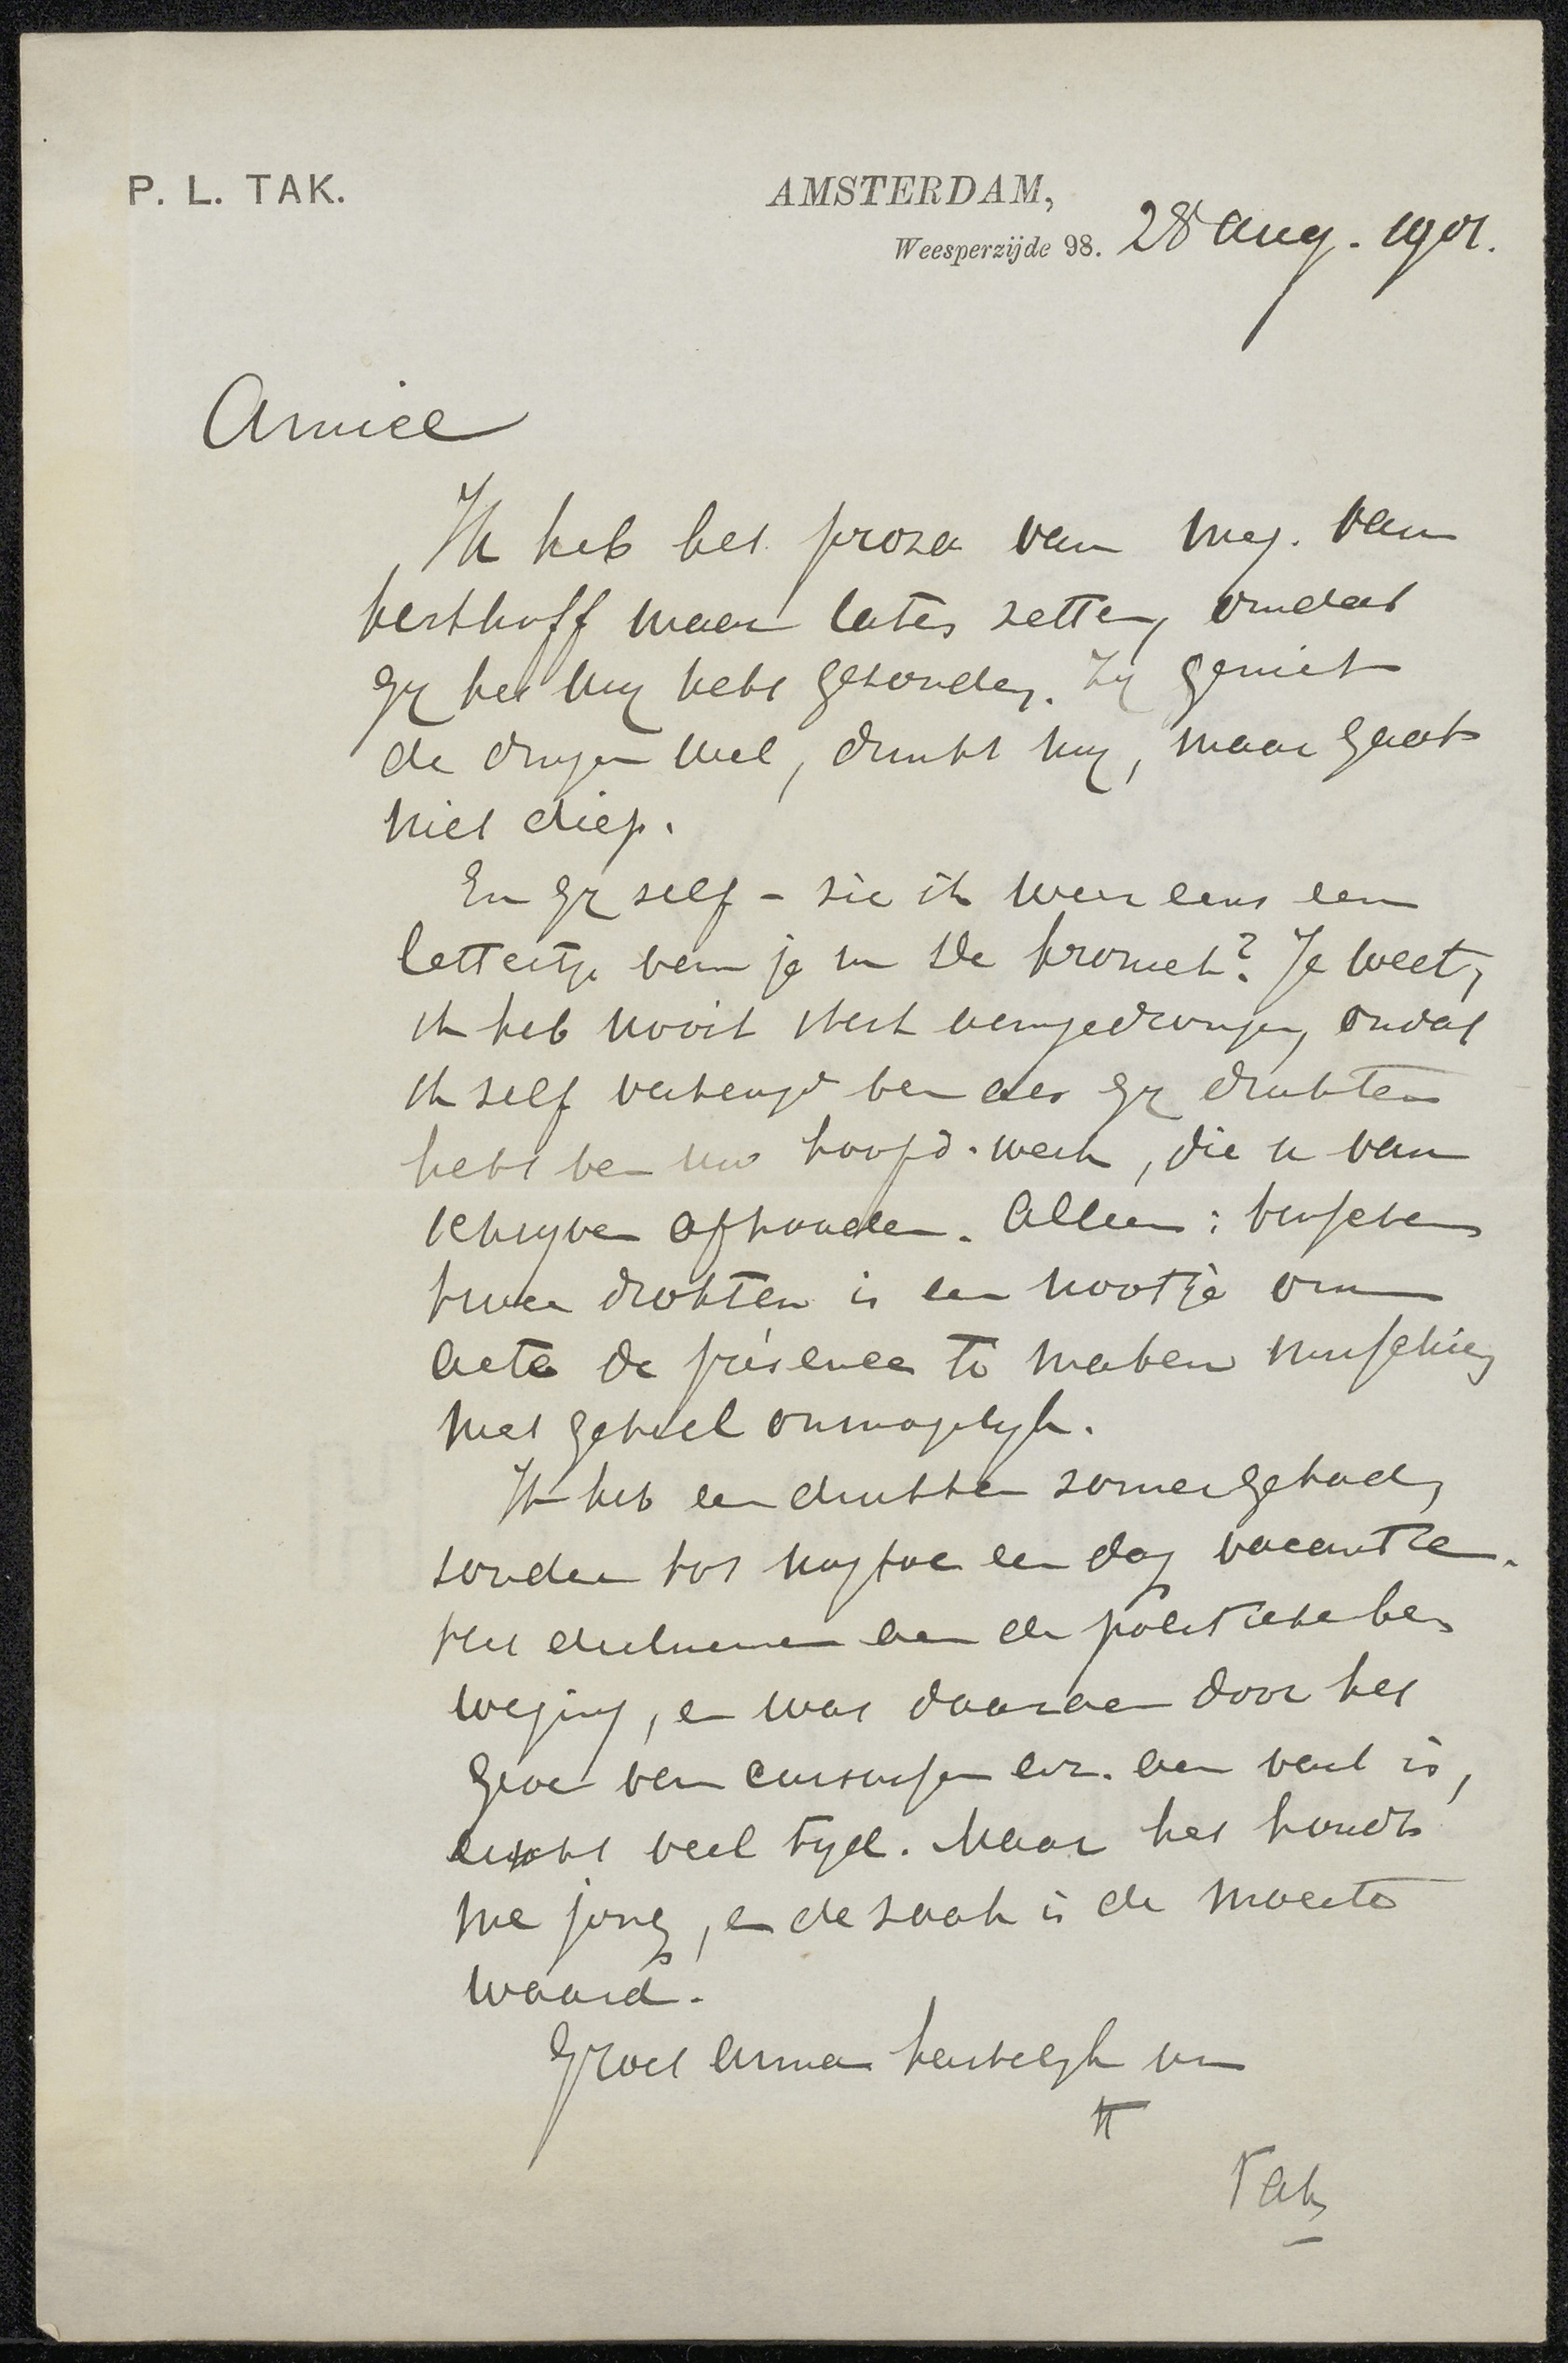 P. L. TAK.
AMSTERDAM,
Weesperzijde 98. 28 Aug. 1901.
Amice
Ik heb het proza van mej. van
maar laten zetten, omdat
gij het mij hebt gezonden. Zij geniet
de dingen wel, dunkt mij, maar gaat
niet diep.
En gij zelf – zie ik weer eens een
lettertje van je in De Kroniek? Je weet,
ik heb nooit sterk aangedrongen, omdat
ik zelf overtuigd ben dat gij drukten
hebt van uw hoofd-werk, die u van
schrijven afhouden. Alleen: tusschen
twee drukten is een nootje om
acte de présence te maken misschien
niet geheel onmogelijk.
Ik heb een drukken zomer gehad,
zonder tot nog toe een dag vacantie.
Het deelnemen aan de politieke be-
weging, en wat daaraan door het
geven van cursussen enz. aan vast is,
veel tijd. Maar het houdt
me jong, en de zaak is de moeite
waard.
Groet Anna hartelijk van
tt
Tak